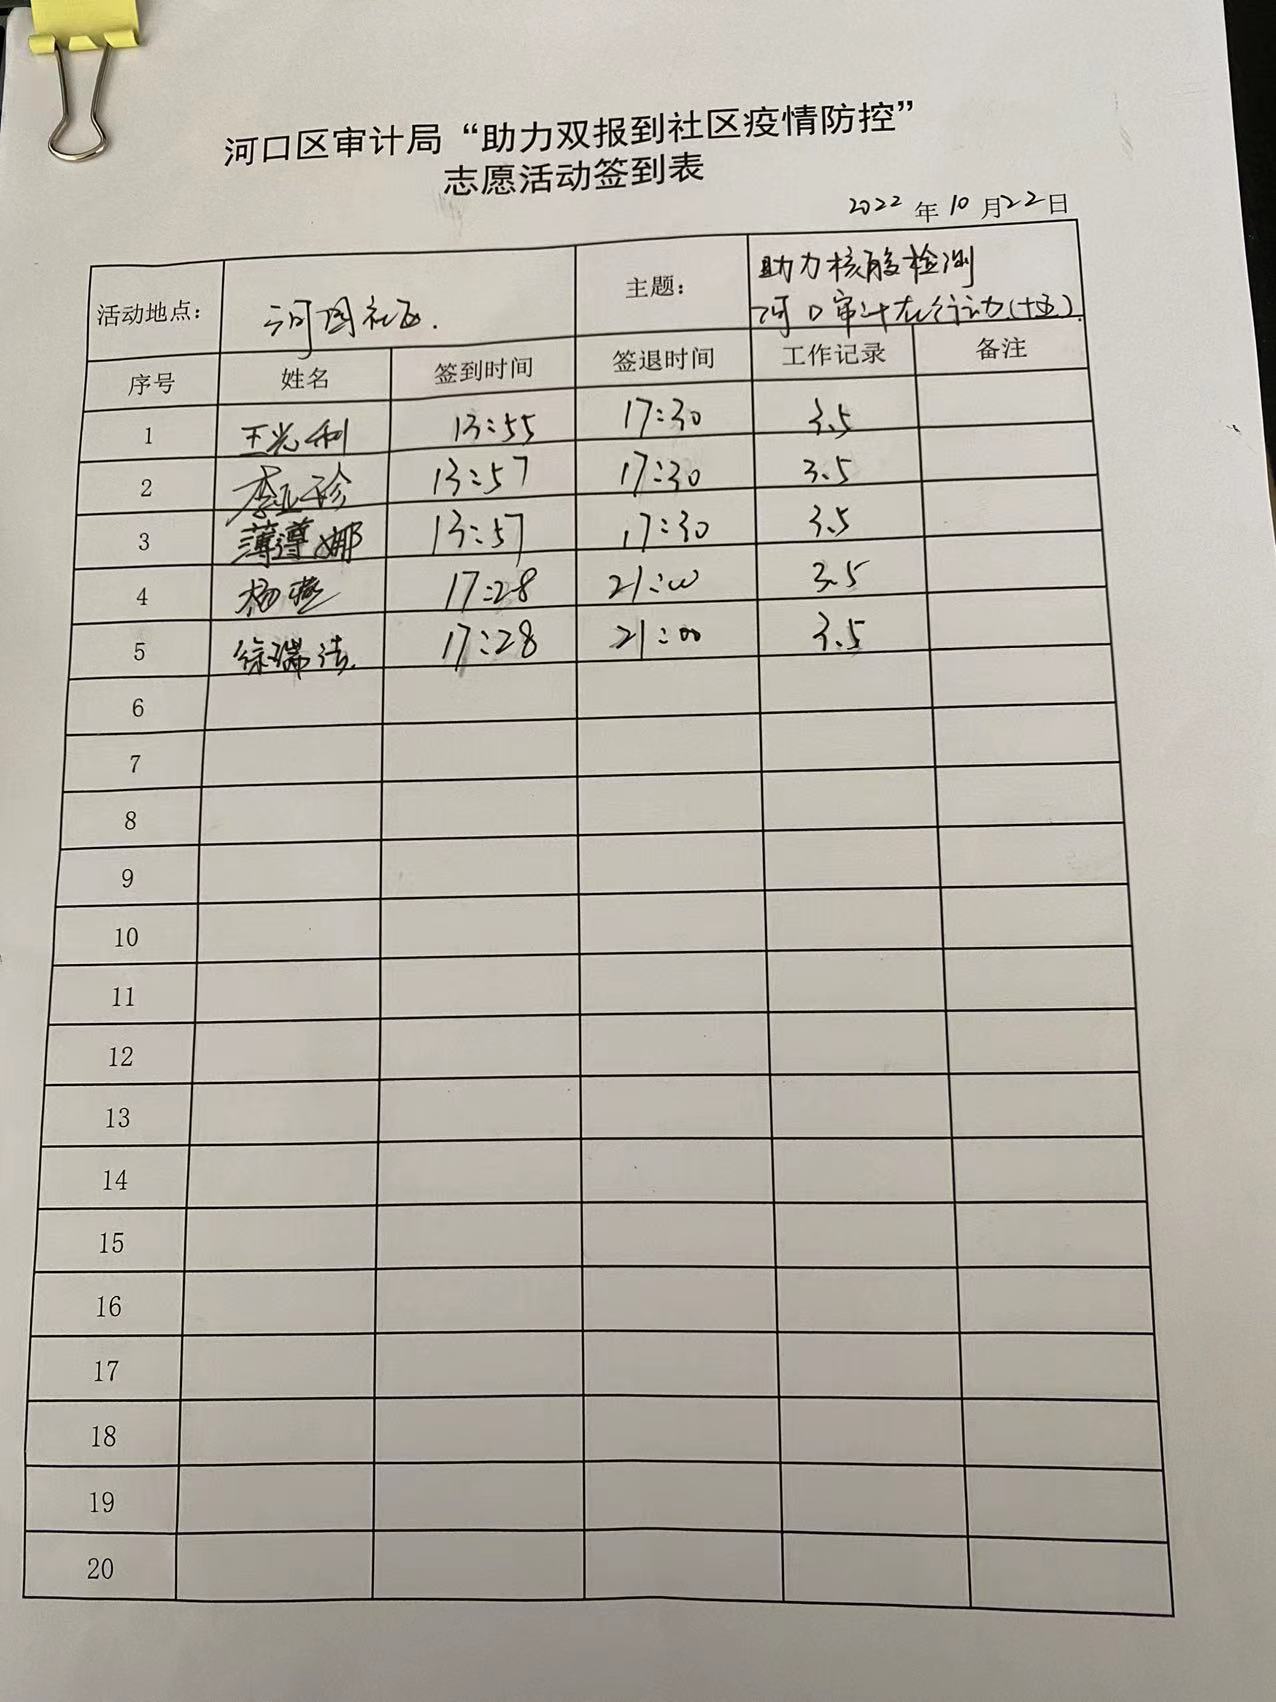 河口区审计局“助力双报到社区疫情防控”
志愿活动签到表
2022 年 10 月 22 日
活动地点： 河图社区. 主题： 助力核酸检测
河口审计在行动(十五).
序号 姓名 签到时间 签退时间 工作记录 备注
1 王光利 13:55 17:30 3.5
2 李亚珍 13:57 17:30 3.5
3 薄遵娜 13:57 17:30 3.5
4 杨燕 17:28 21:00 3.5
5 徐瑞洁. 17:28 21:00 3.5
6
7
8
9
10
11
12
13
14
15
16
17
18
19
20